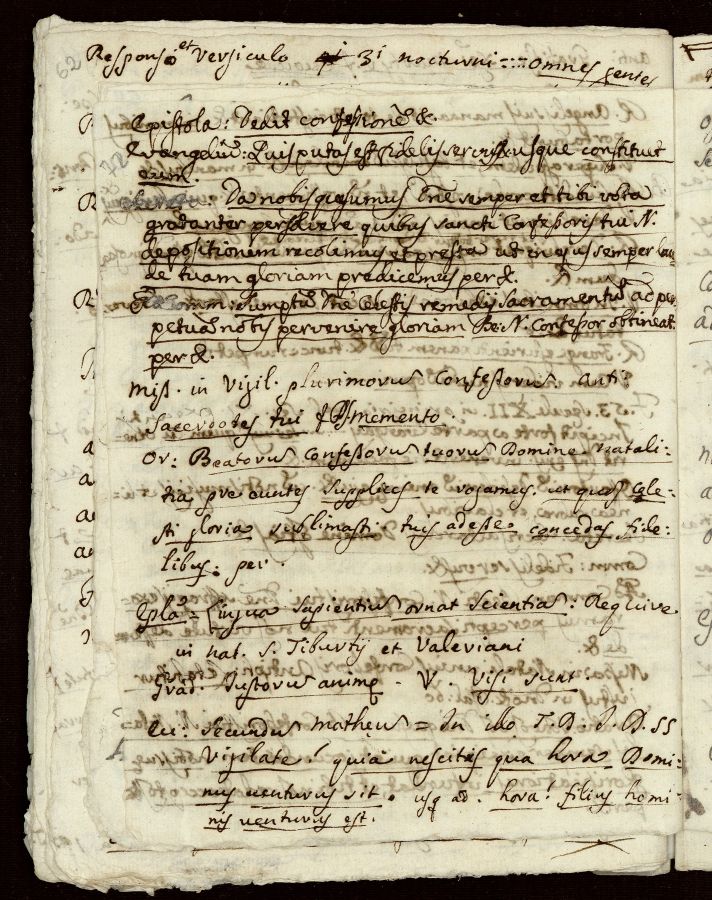 62 Responso et Versiculo 3i nocturni :::: omnes gentes
Epistola: Dedit confessionē &.
Evangeliū: Quis putas est fidelis servus usque constituit
eum.
Da nobis quesumus Dñe semper et tibi vota
gratanter persolvere quibus sancti Confessoris tui N.
depositionem recolimus et presta ut in ejus semper lau
de tuam gloriam predicemus per &.
Comm: Sumptū Dñe celestis remedij Sacramentū ad per
petuā nobis pervenire gloriam Be: N. Confessor obtineat.
per &.
Miss. in Vigil. plurimorū Confessorū. Anti:
Sacerdotes tui Ps Memento.
Or: Beatorū Confessorū tuorū Domine natali:
tia pre euntes supplices te rogamus, ut quos cele:
sti gloria sublimasti tuis adesse concedas fide:
libus: per.
Epla = Lingua sapientiū ornat Scientiā: Require
in nat. S. Tiburtij et Valeriani
Grad. Justorū animę. V. Visi sunt
Eu: Secundū Matheū = In illo T. D. J. D. SS
Vigilate! quia nescitis qua hora Domi:
nus venturus sit. usq ad. hora! filius homi:
nis venturus est.